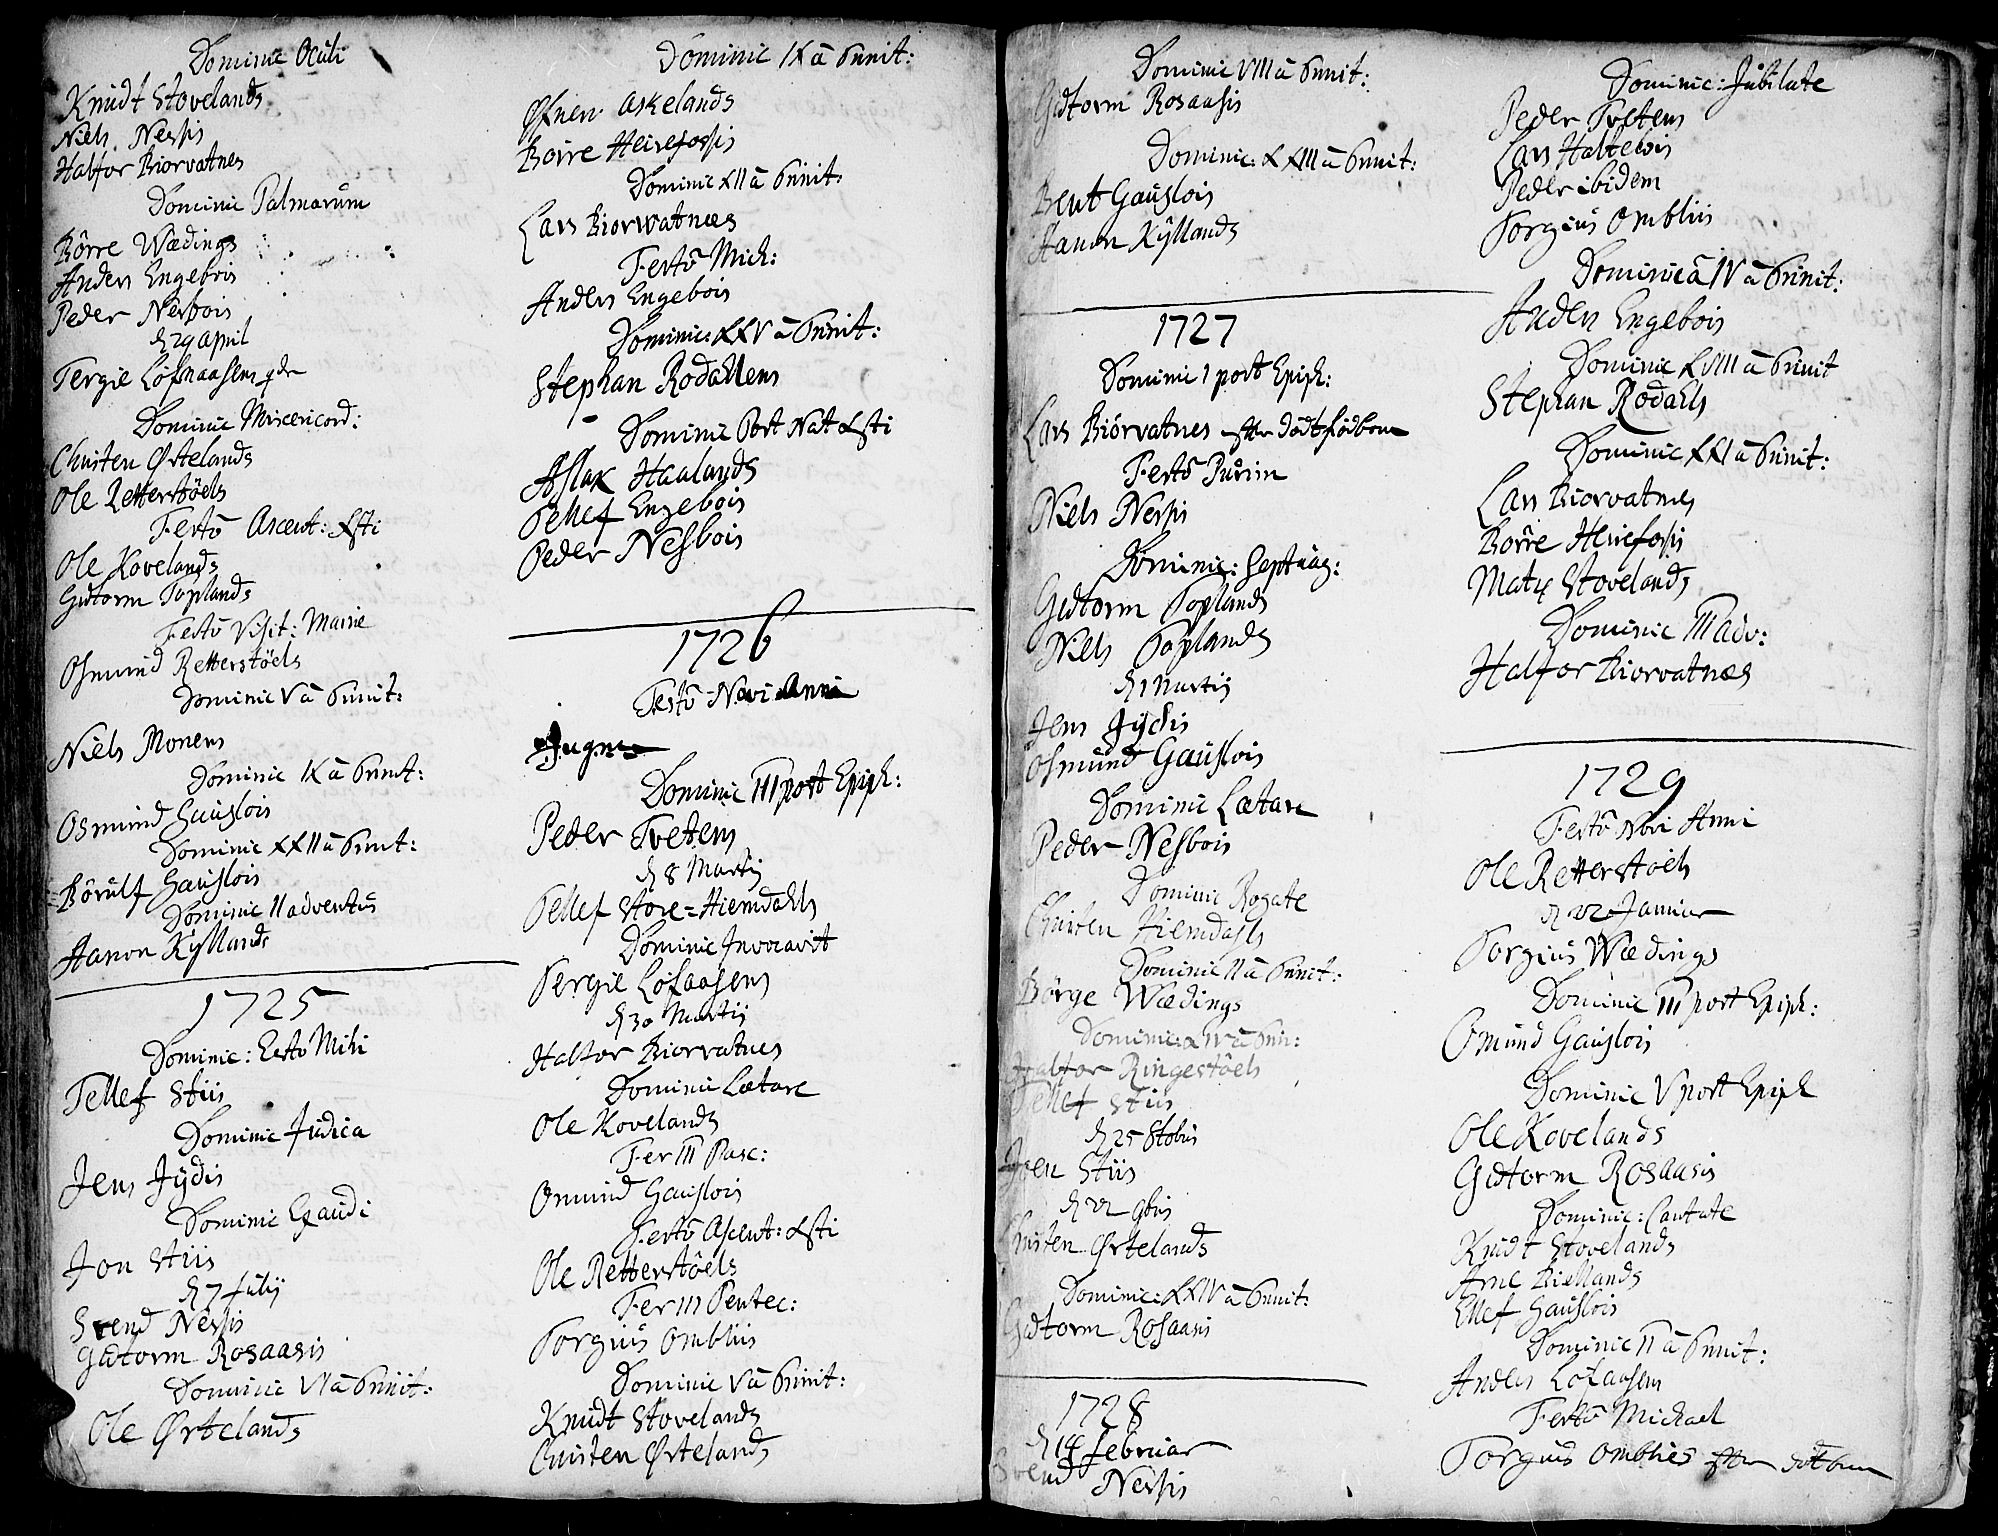 Dominic Oculi
Knudt Stovelands
Niels Nersis
Halfor Biorvatnes
Dominic Palmarum
Börre Wædings
Anders Engebois
Peder Nesbois
d 29 april
Tergie Lofnaasens
Dominic Misericord:
Christen Ørtelands
Ole Retterstöels
Festo Ascent: Xsti
Ole Kovelands
Gutorm Toplands
Festo Visit: Mariæ
Osmund Retterstöels
Dominic V a Trinit:
Niels Monens
Dominic IX a Trinit:
Osmund Gauslois
Dominic XXII a Trinit:
Börulf Gauslois
Dominic II adventus
Aanon Kyllands
1725
Dominic: Esto Mihi
Tellef Stiis
Dominic Judica
Jens Jydis
Dominic Exaudi
Jon Stiis
d 7 Julij
Svend Nersis
Gutorm Rosaasis
Dominic VI a Trinit:
Ole Ørtelands
Dominic IX a Trinit:
Askelands
Borre Heirefossis
Dominic XII a Trinit:
Lars Biorwatnæs
Festo Mich:
Anders Engebois
Dominic: XXV a Trinit:
Stephan Rodahlens
Dominic Post Nat Xsti
Aslak Haalands
Tellef Engebois
Peder Nesbois
1726
Festo Novi Anni
Dominic III post Epiph:
Peder Tvetens
d 8 Martij
Tellef Store-Hiemdahls
Dominic Invocavit
Tergie Lofaasens
d 30 Martij
Halfor Biorvatnes
Dominic Lætare
Ole Kovelands
Fer III Pasc:
Omund Gauslois
Festo Ascent: Xsti
Ole Retterstöels
Fer III Pentec:
Torgius Ombliis
Dominic V a Trinit:
Knudt Stovelands
Christen Ørtelands
Dominic VIII a Trinit:
Gutorm Rosaasis
Dominic: XXIII a Trinit:
Bent Gauslois
Aanon Kyllands
1727
Dominic 1 post Epiph:
Lars Biörvatnes efter dödtfödbarn
Festo Purim
Niels Nersis
Dominic: Septuag:
Gutorm Toplands
Niels Toplands
d 1 Martij
Jens Jydis
Osmund Gauslois
Dominic Lætare
Peder Nesbois
Dominic Rogate
Christen Hiemdahls
Dominic II a Trinit:
Börge Wædings
Dominic: XV a Trin:
Halfor Ringestöels
Tellef Stiis
d 25 8tobris
Joen Stiis
d 22 9bris
Christen Ørtelands
Dominic: XXIV a Trinit:
Gutorm Rosaasis
1728
d 18 februar
Svend Nersis
Dominic: Jubilate
Peder Tvetens
Lars Haltebois
Peder ibidem
Torgius Ombliis
Dominica IV a Trinit:
Anders Engebois
Dominic XVIII a Trinit
Stephan Rodahls
Dominic XXI a Trinit:
Lars Biorvatnes
Borre Heirefossis
Mats Stovelands
Dominic III adv:
Halfor Biorvatnæs
1729
Festo Novi Anni
Ole Retterstöels
d 22 Januar
Torgius Wædings
Dominic III post Epiph:
Omund Gauslois
Dominic V post Epiph
Ole Kovelands
Gutorm Rosaasis
Dominic: Cantate
Knudt Stovelands
Arne Biellands
Ellef Gauslois
Dominic II a Trinit:
Anders Lofaasens
Festo Michael
Torgius Omblies efter dödbarn